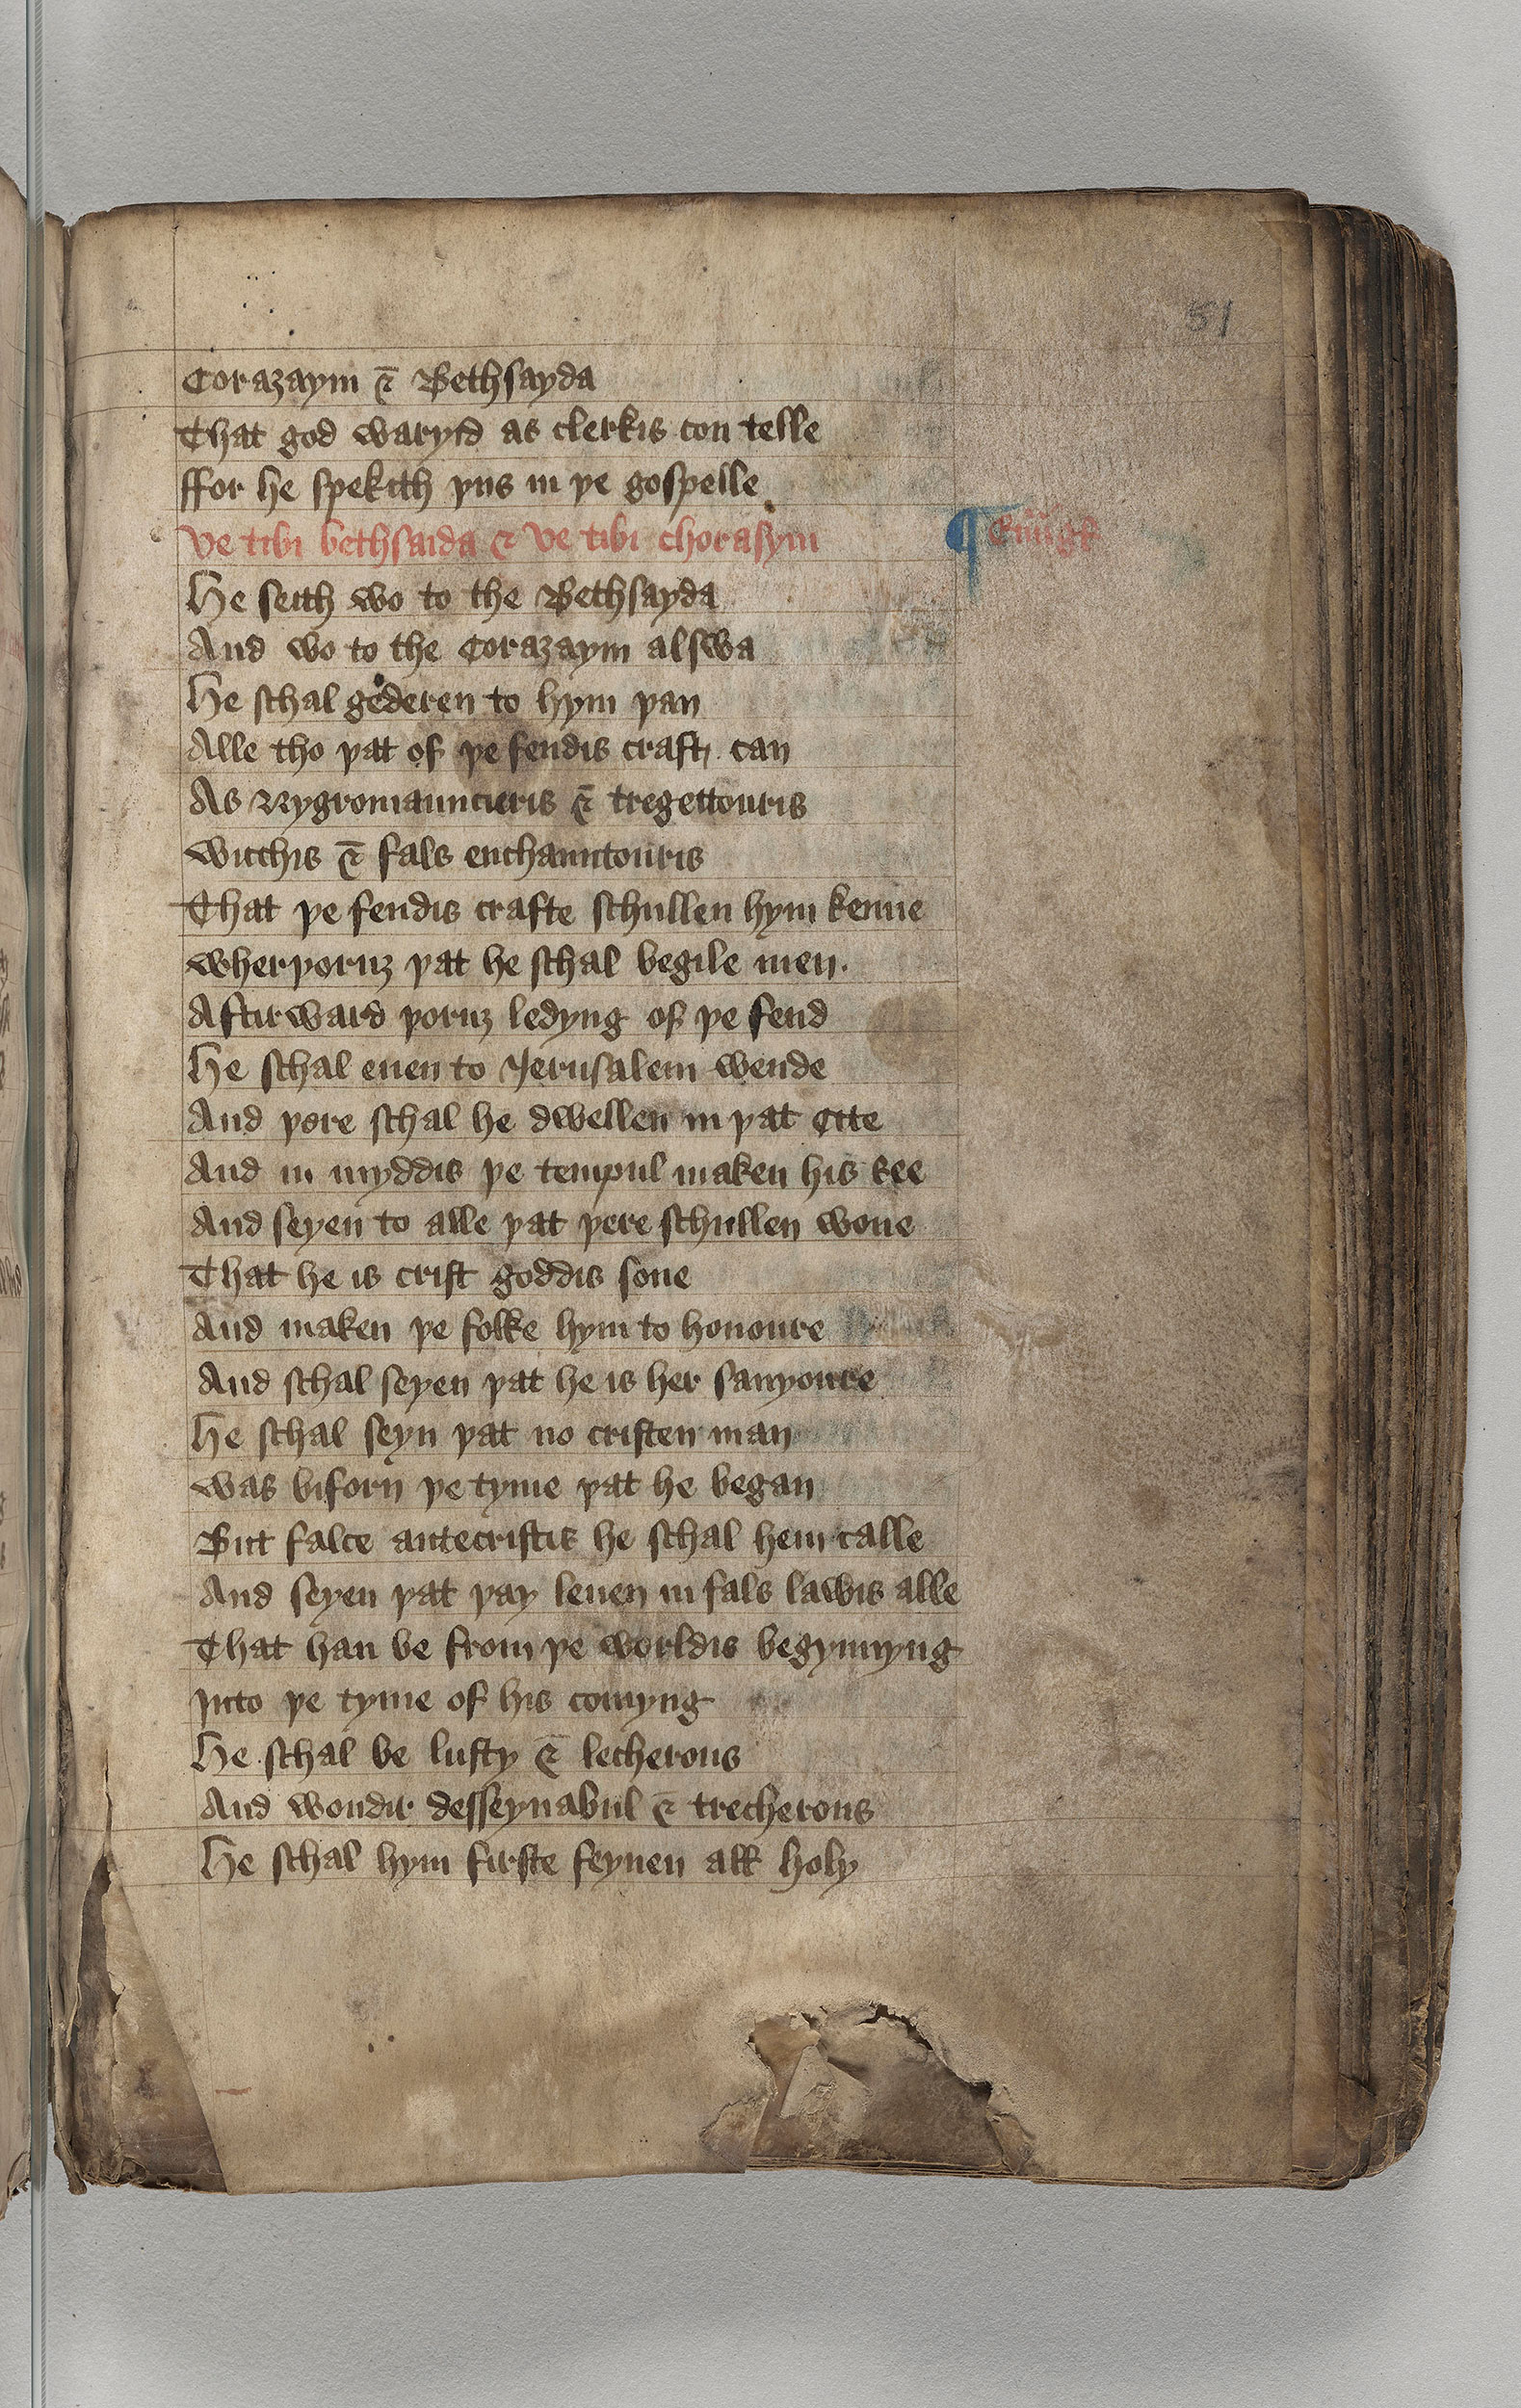 51
Corazaym & Bethsayda
That god waryid as clerkis con telle
ffor he spekith þus in þe gospelle
Ve tibi bethsaida & ve tibi chorasym
He seith wo to the Bethsayda
And wo to the Corazaym alswa
He schal gederen to hym þan
Alle tho þat of þe fendis craft can
As Nygromaunciers & tregettouris
Wicchis & fals enchauntouris
That þe fendis crafte schullen hym kenne
Wherþoruȝ þat he schal begile men.
Aftirward þoruȝ ledyng of þe fend
He schal euen to Jerusalem wende
And þore schal he dwellen in þat Cite
And in myddis þe tempul maken his see
And seyen to alle þat þere schullen wone
That he is crist goddis sone
And maken þe folke hym to honoure
And schal seyen þat he is her sauyoure
He schal seyn þat no cristen man
Was biforn þe tyme þat he began
But falce antecristis he schal hem calle
And seyen þat þay leuen in fals lawis alle
That han be from þe worldis begynnyng
Into þe tyme of his comyng
He schal be lusty & lecherous
And wondir desseynabul & trecherous
He schal hym firste feynen all holy